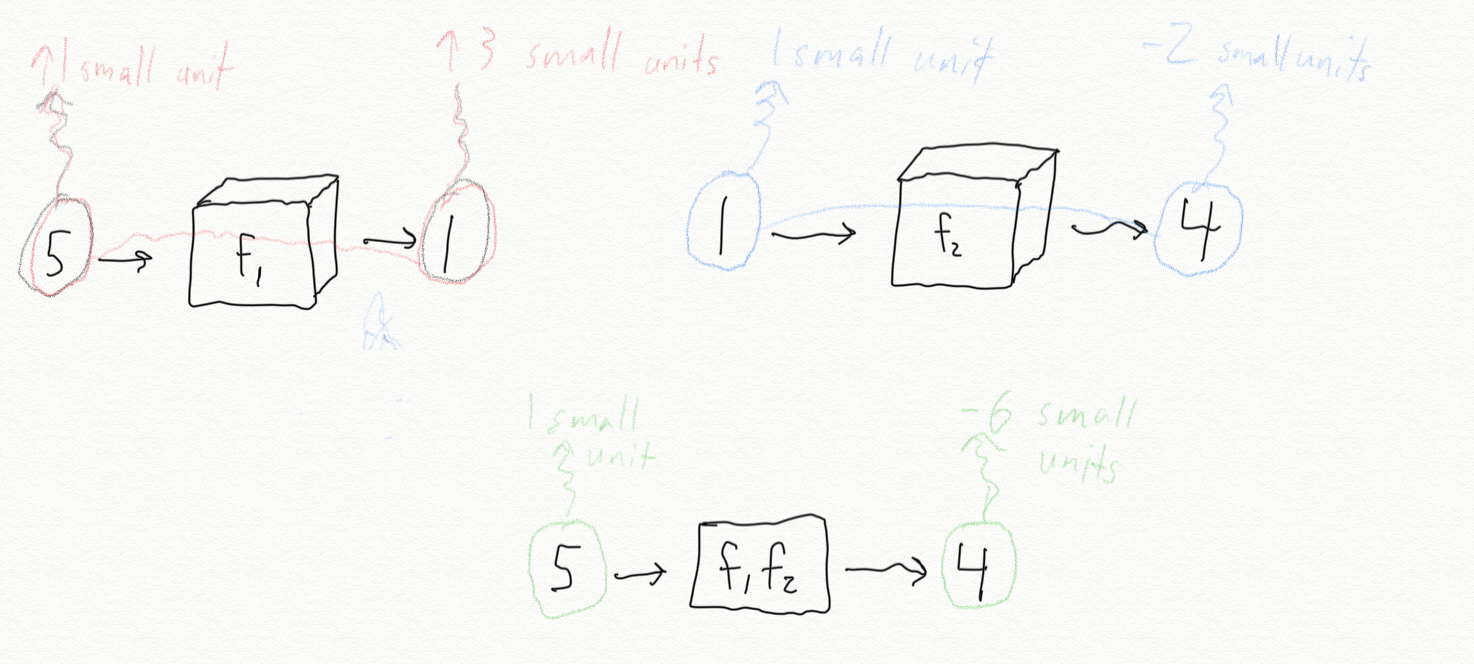 ↑1 small unit
↑ 3 small units
1 small unit
-2 small units
5 → f₁ → 1
1 → f₂ → 4
1 small
unit
-6 small
units
5 → f₁f₂ → 4